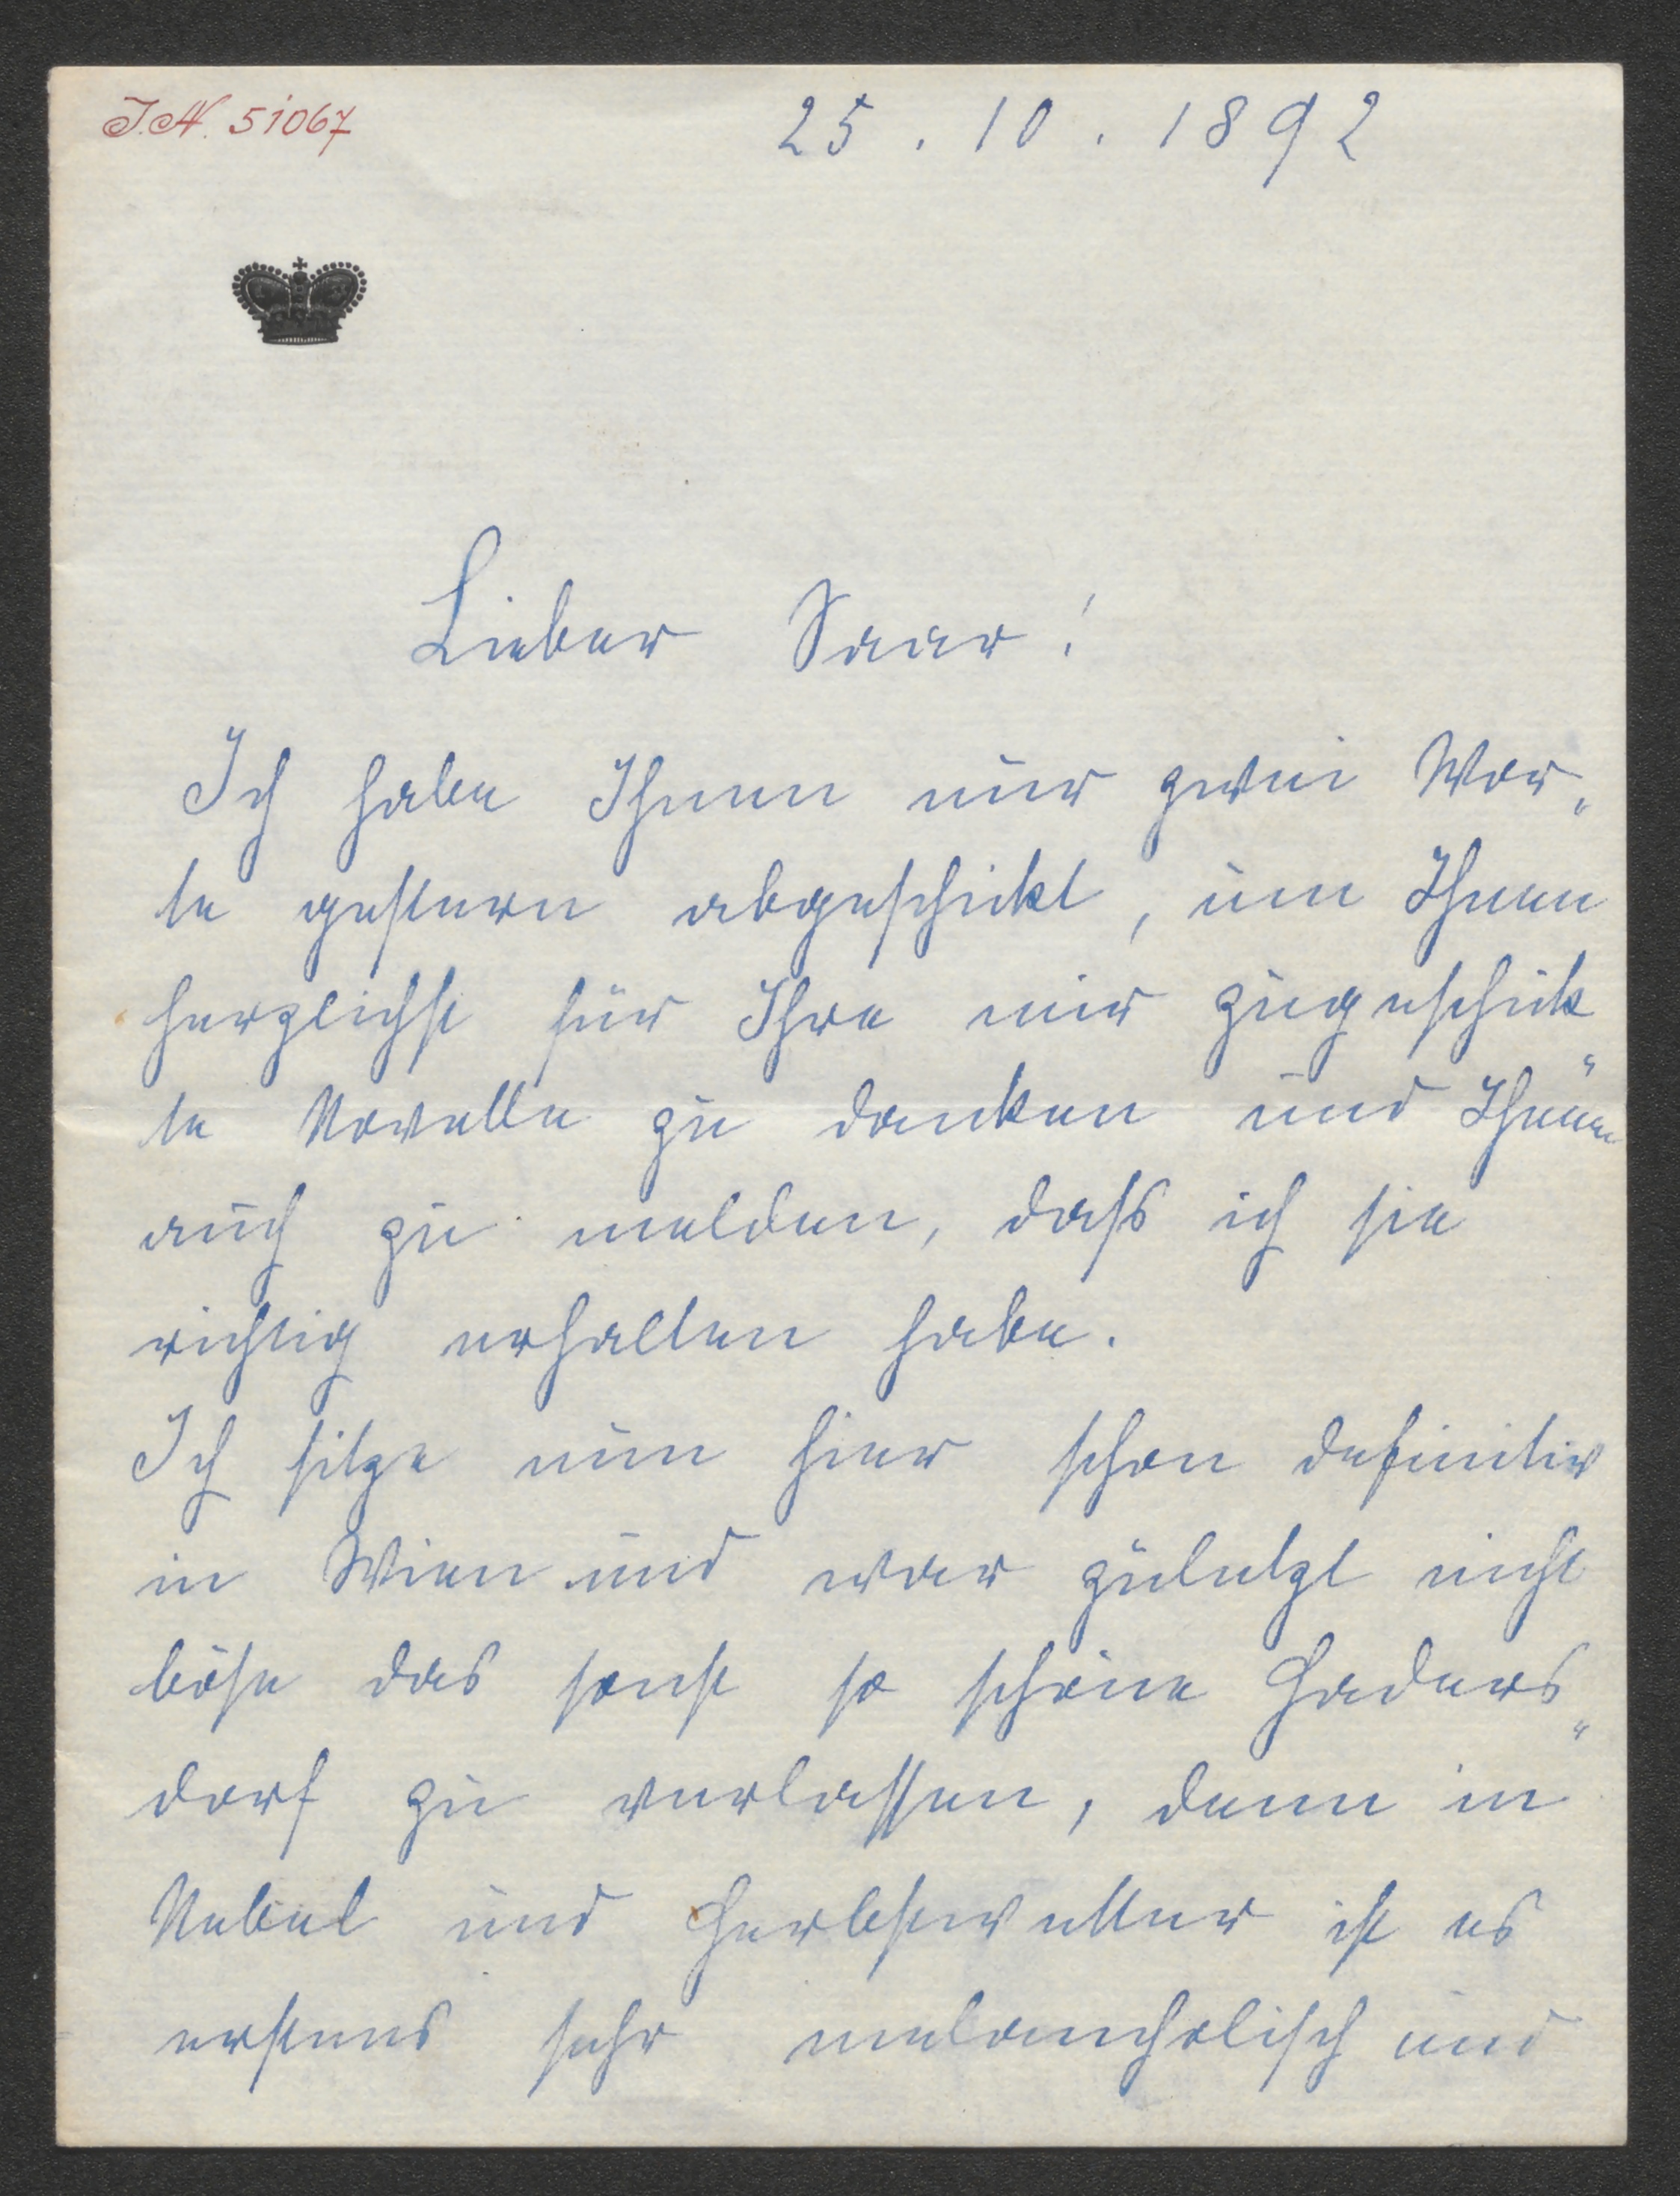 J.N. 51067
25. 10. 1892
Lieber Saar!
Ich habe Ihnen nur zwei Wor„
te gestern abgeschickt, um Ihnen
herzlichst für Ihre mir zugeschick„
te Novelle zu danken und Ihnen
auch zu melden, dass ich sie
richtig erhalten habe.
Ich sitze nun hier schon definitiv
in Wien und war zuletzt nicht
böse das sonst so schöne Haders„
dorf zu verlassen, denn in
Nebel und Herbstwetter ist es
erstens sehr melancholisch und